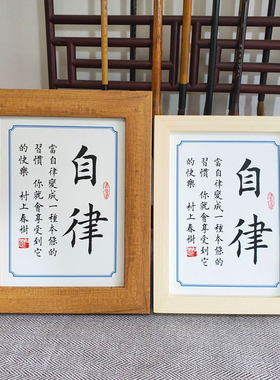 自律
當自律變成一種本能的
習慣 你就會享受到它
的快樂 村上春樹
自律
當自律變成一種本能的
習慣 你就會享受到它
的快樂 村上春樹